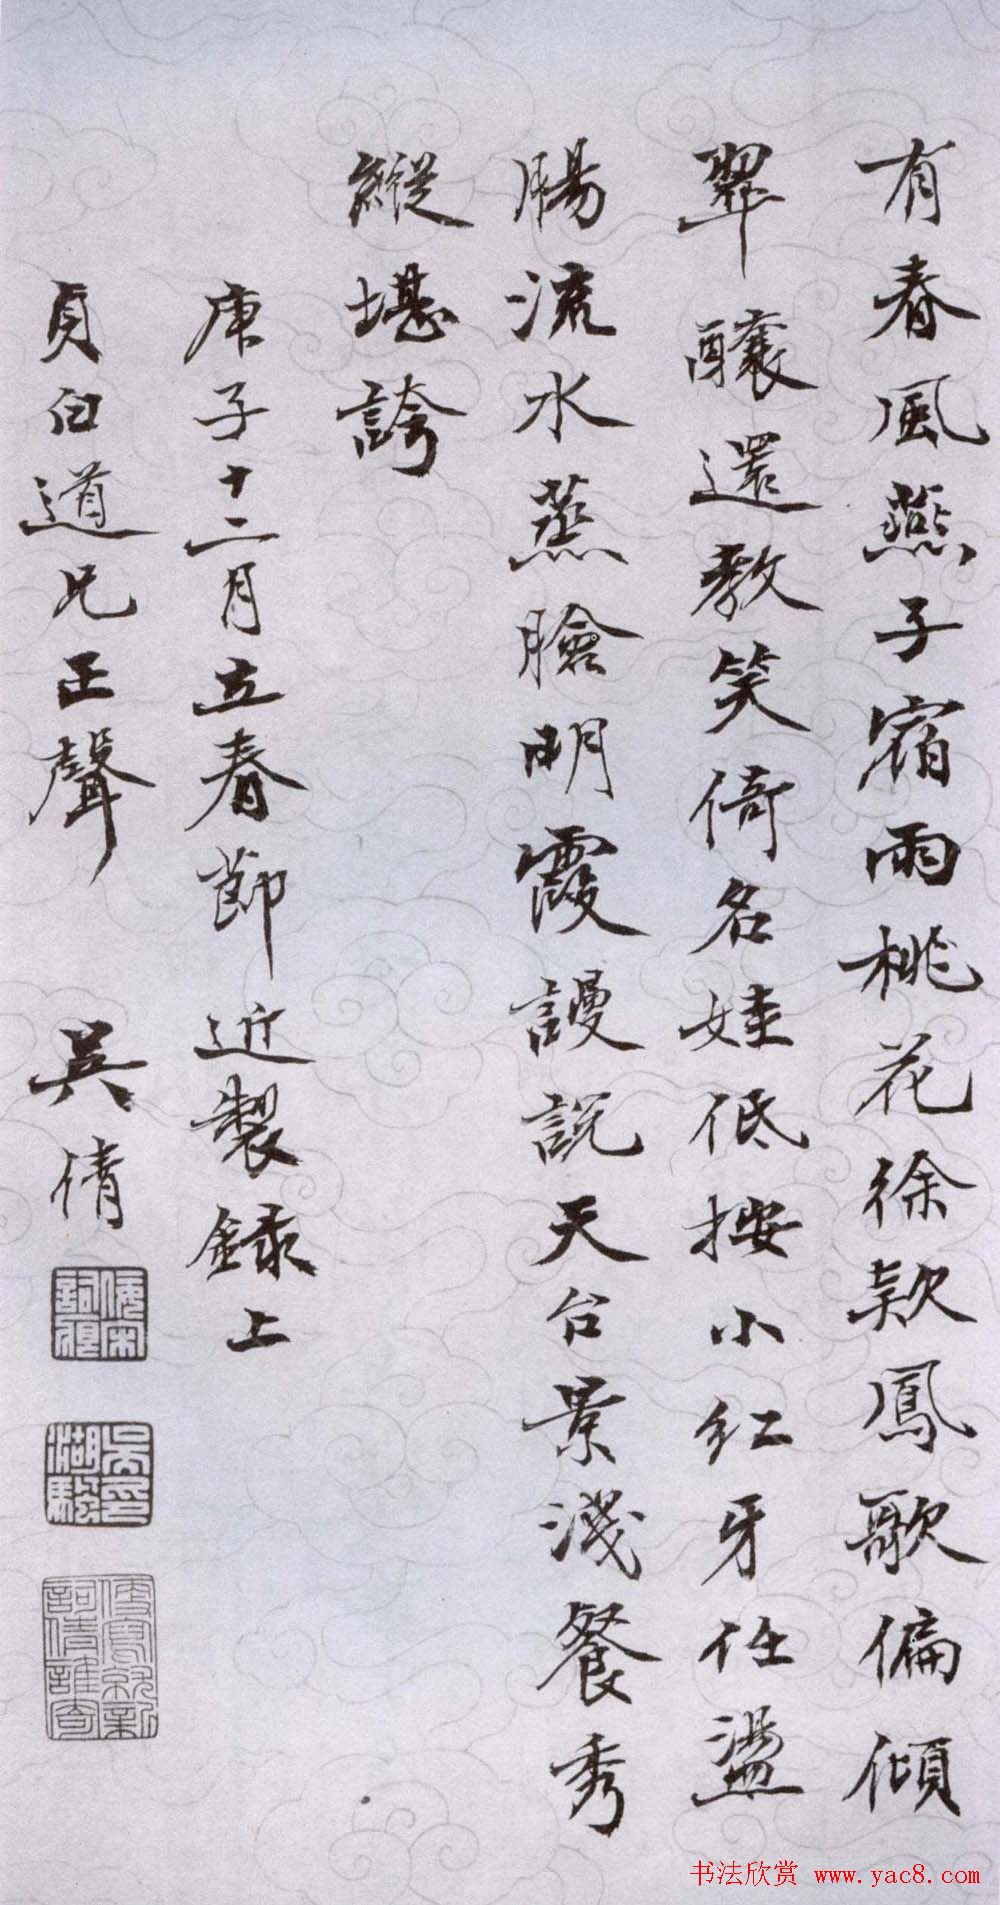 有春風燕子宿雨桃花徐款鳳歌偏傾
翠釀還教笑倚名娃低按小紅牙任盪
腸流水蒸臉明霞謾說天台景淺餐秀
縱堪誇
庚子十二月立春節近製錄上
貞白道兄正聲 吳倩
吳湖騐印
书法欣赏 www.yac8.com